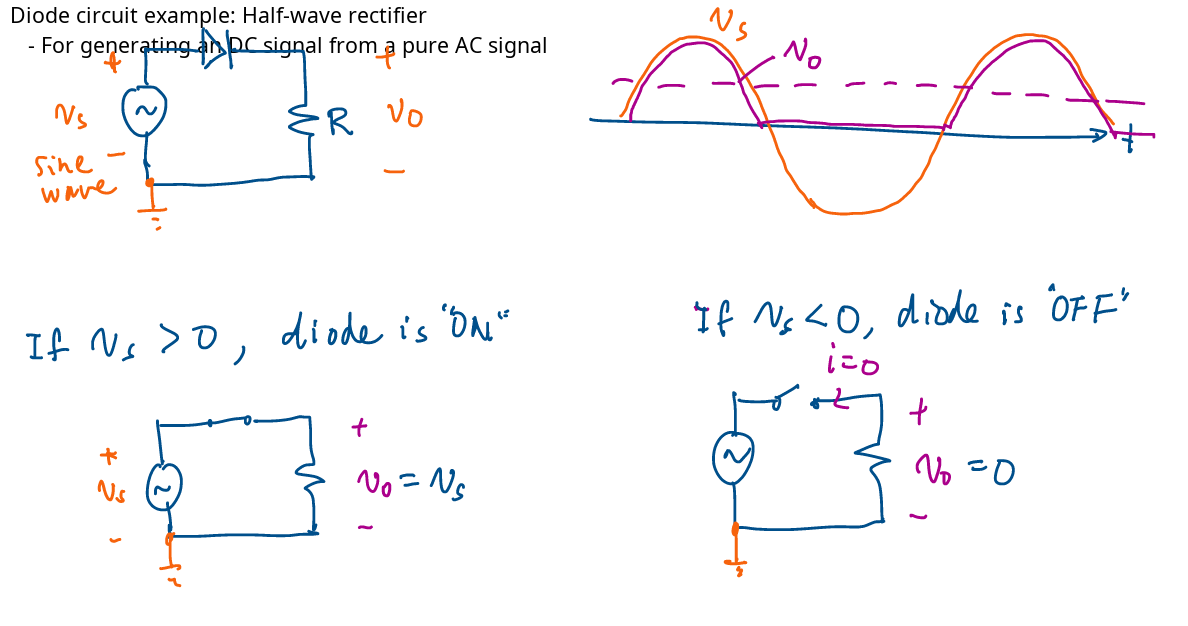 Diode circuit example: Half-wave rectifier
- For generating an DC signal from a pure AC signal
+
Vs
-
sine
wave
R
+
Vo
-
Vs
Vo
t
If Vs > 0, diode is "ON"
If Vs < 0, diode is "OFF"
+
Vs
-
+
Vo = Vs
-
i=0
+
Vo = 0
-